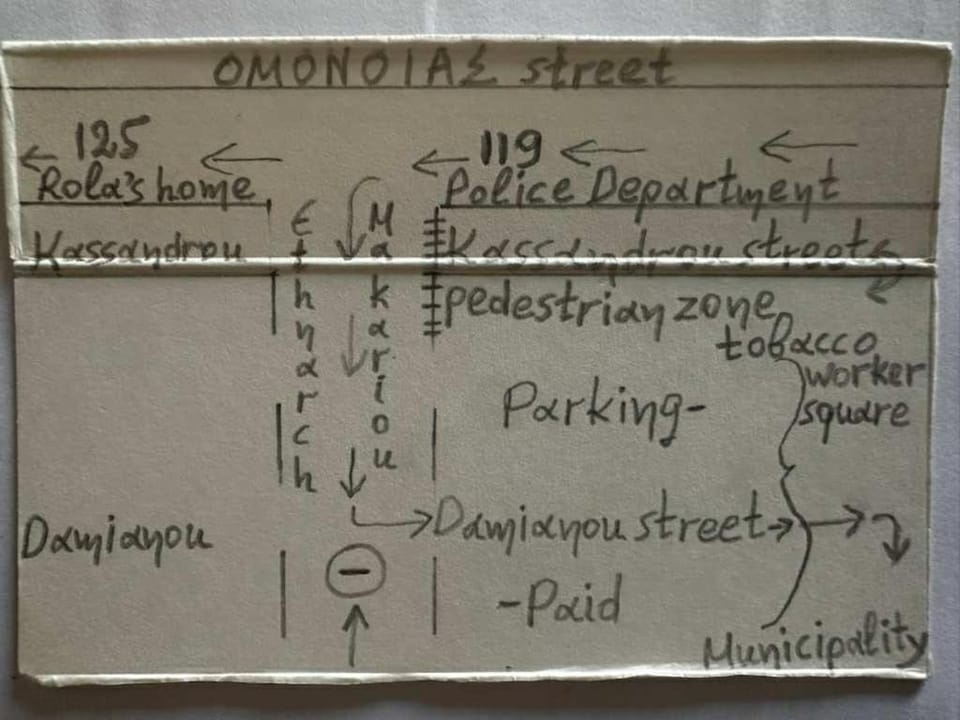 ΟΜΟΝΟΙΑΣ street
125
119
Rola's home
Police Department
Kassandrou
Ethnarch
Makariou
Kassandrou street
pedestrian zone
tobacco
worker
square
Parking-
Damianou
Damianou street
-Paid
Municipality